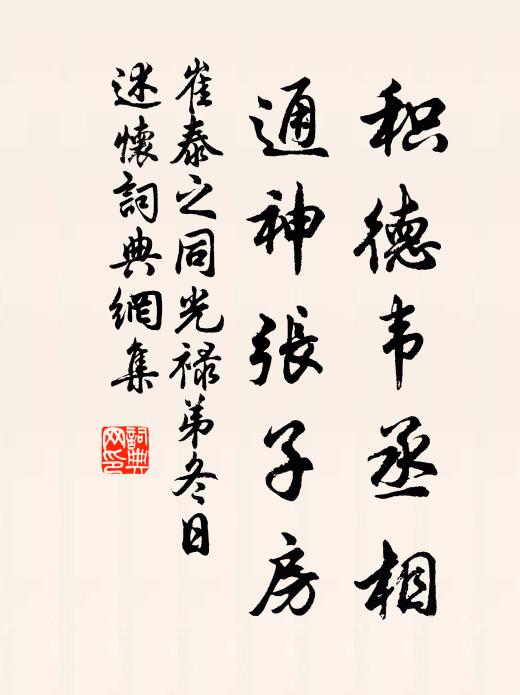 积德韦丞相
通神張子房
崔泰之同光禄弟冬日
述懷詞典網集
詞典网印